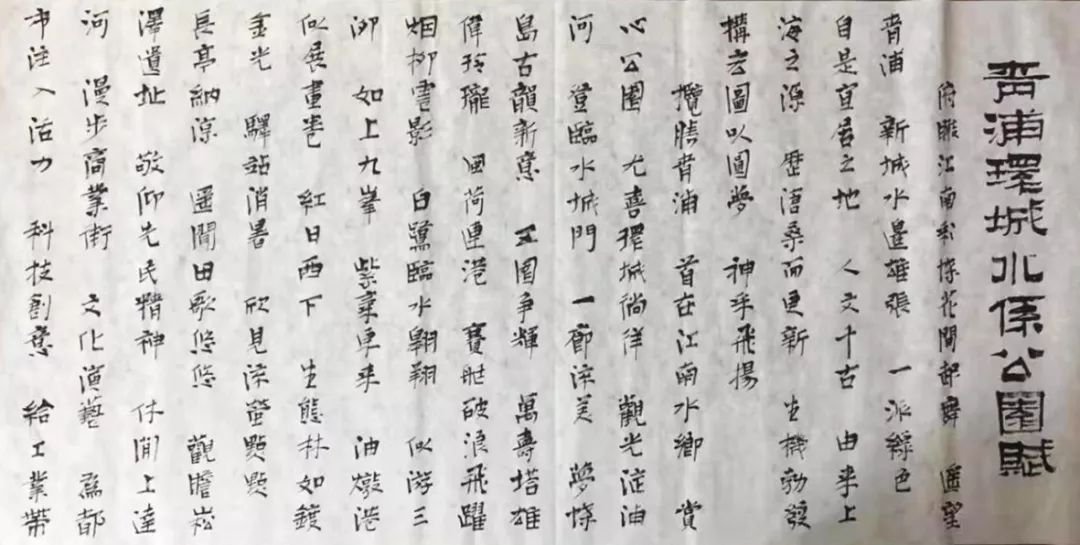 青浦環城水系公園賦
俯瞰江南彩傢花間起舞 遥望
青浦 新城水邊雄張 一派綠色
自是宜居之地 人文千古 由来上
海之源 歷滄桑而更新 生機勃發
構宏圖以圓夢 神采飛揚
攬勝青浦 首在江南水鄉 賞
心公園 尤喜環城徜徉 觀光淀浦
河 登臨水城門 一廊淳美 夢
島古韻新意 五園争輝 萬壽塔雄
偉玲瓏 西荷連港 賽艇破浪飛躍
烟柳雲影 白鷺臨水翱翔 似游三
泖 如上九峯 紫氣東来 油墩港
似展畫卷 紅日西下 生態林如鍍
金光 驛站消暑 欣見流螢點點
長亭納涼 遥聞田歌悠悠 觀瞻崧
澤遺址 敬仰先民精神 休閒上達
河 漫步商業街 文化演藝 爲都
市注入活力 科技創意 給工業帶